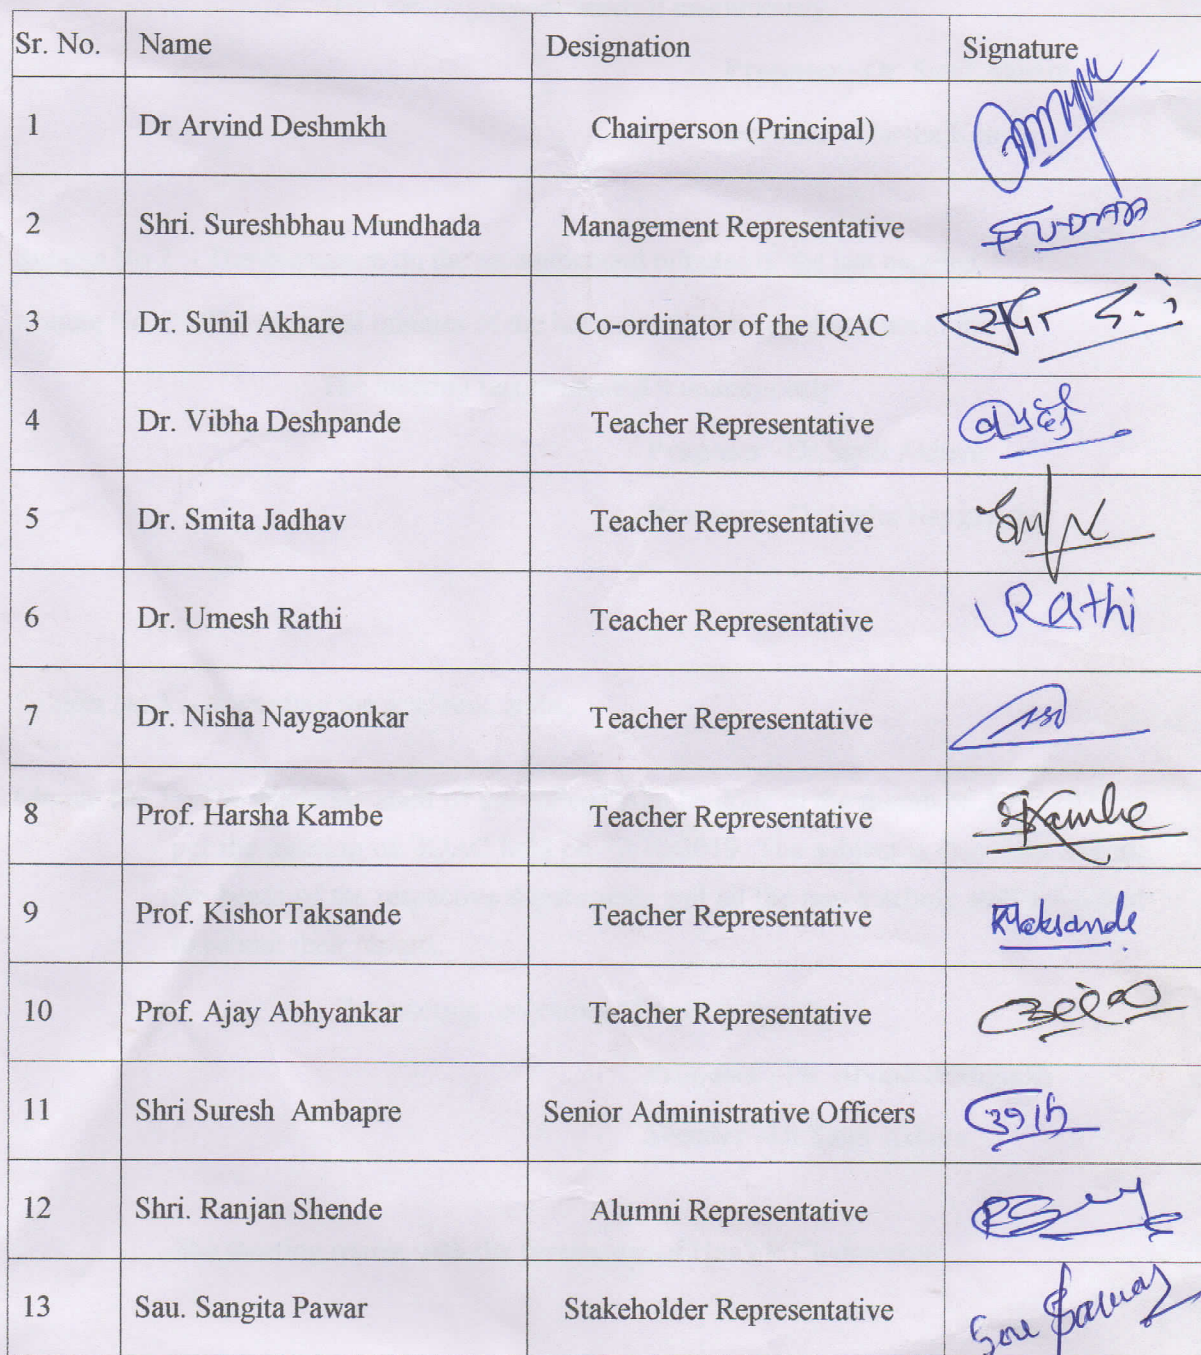 Sr. No. Name Designation Signature
1 Dr Arvind Deshmkh Chairperson (Principal)
2 Shri. Sureshbhau Mundhada Management Representative
3 Dr. Sunil Akhare Co-ordinator of the IQAC
4 Dr. Vibha Deshpande Teacher Representative
5 Dr. Smita Jadhav Teacher Representative
6 Dr. Umesh Rathi Teacher Representative Rathi
7 Dr. Nisha Naygaonkar Teacher Representative
8 Prof. Harsha Kambe Teacher Representative Kambe
9 Prof. KishorTaksande Teacher Representative Ktaksande
10 Prof. Ajay Abhyankar Teacher Representative
11 Shri Suresh Ambapre Senior Administrative Officers
12 Shri. Ranjan Shende Alumni Representative
13 Sau. Sangita Pawar Stakeholder Representative